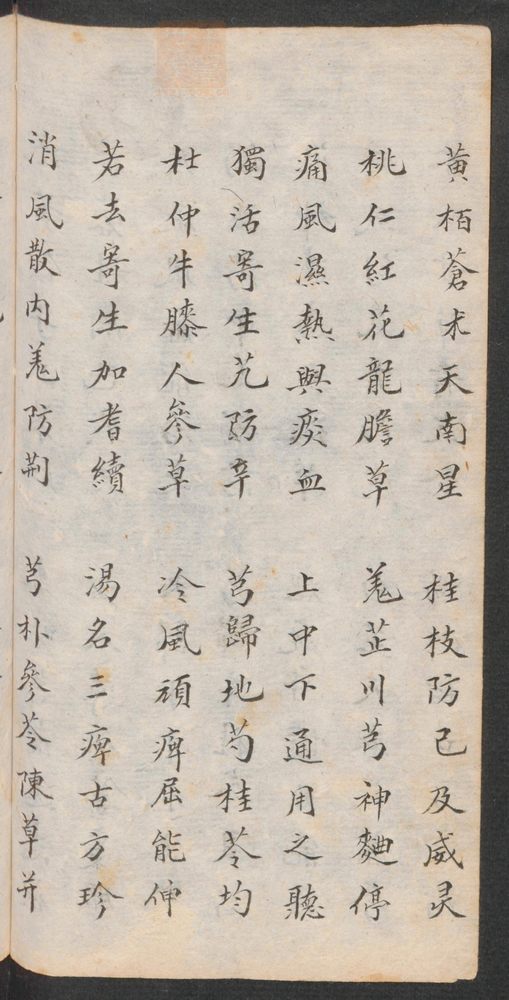 黄栢蒼术天南星　桂枝防己及威灵
桃仁紅花龍膽草　羗芷川芎神麯停
痛風濕熱與痰血　上中下通用之聽
獨活寄生艽防辛　芎歸地芍桂苓均
杜仲牛膝人參草　冷風頑痺屈能伸
若去寄生加耆續　湯名三痺古方珍
消風散内羗防荆　芎朴參苓陳草并